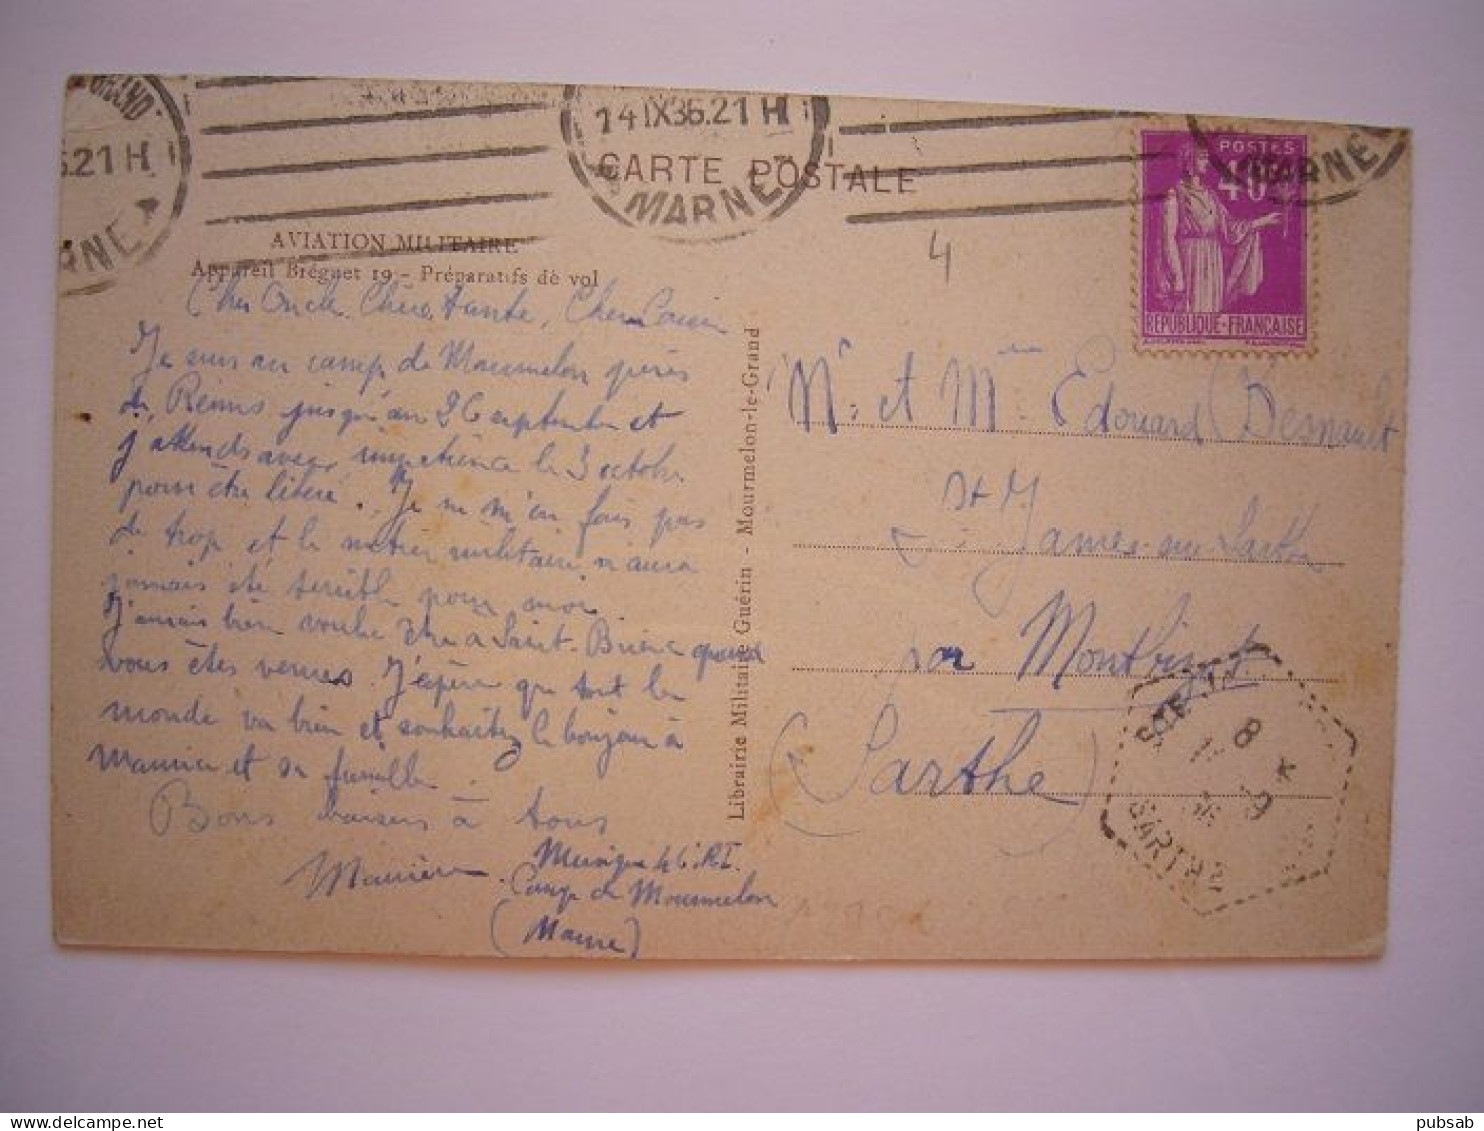 GRAND
6.21 H
MARNE
14 IX 36.21 H
MARNE
MARNE
CARTE POSTALE
POSTES
40c
REPUBLIQUE-FRANÇAISE
4
AVIATION MILITAIRE
Appareil Bréguet 19 - Préparatifs de vol
Cher Oncle, Chère tante, Cher Cousin
Je suis au camp de Mourmelon près
de Reims jusqu'au 26 septembre et
j'attends avec impatience le 3 octobre
pour être libéré. Je ne m'en fais pas
de trop et le métier militaire n'aura
jamais été terrible pour moi.
J'aurais bien voulu être à Saint-Brieuc quand
vous êtes venus. J'espère que tout le
monde va bien et souhaitez le bonjour à
Maurice et sa famille.
Bons baisers à tous
Musique 46e R.I.
Camp de Mourmelon
(Marne)
Librairie Militaire Guérin - Mourmelon-le-Grand
Mr et Mme Edouard
St J. James-sur-Sarthe
par Montbizot
(Sarthe)
STE J
8
SARTHE
pubsab
delcampe.net